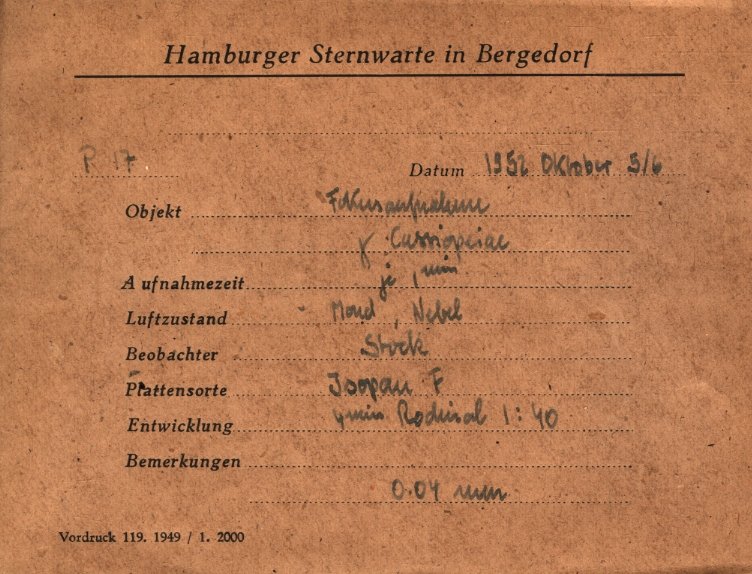 Hamburger Sternwarte in Bergedorf
P 17
Datum 1952 Oktober 5/6
Objekt Fokusaufnahme
γ Cassiopeiae
Aufnahmezeit je 1 min
Luftzustand Mond, Nebel
Beobachter Stock
Plattensorte Isopan F
Entwicklung 4 min Rodinal 1:40
Bemerkungen
0.04 mm
Vordruck 119. 1949 / 1. 2000